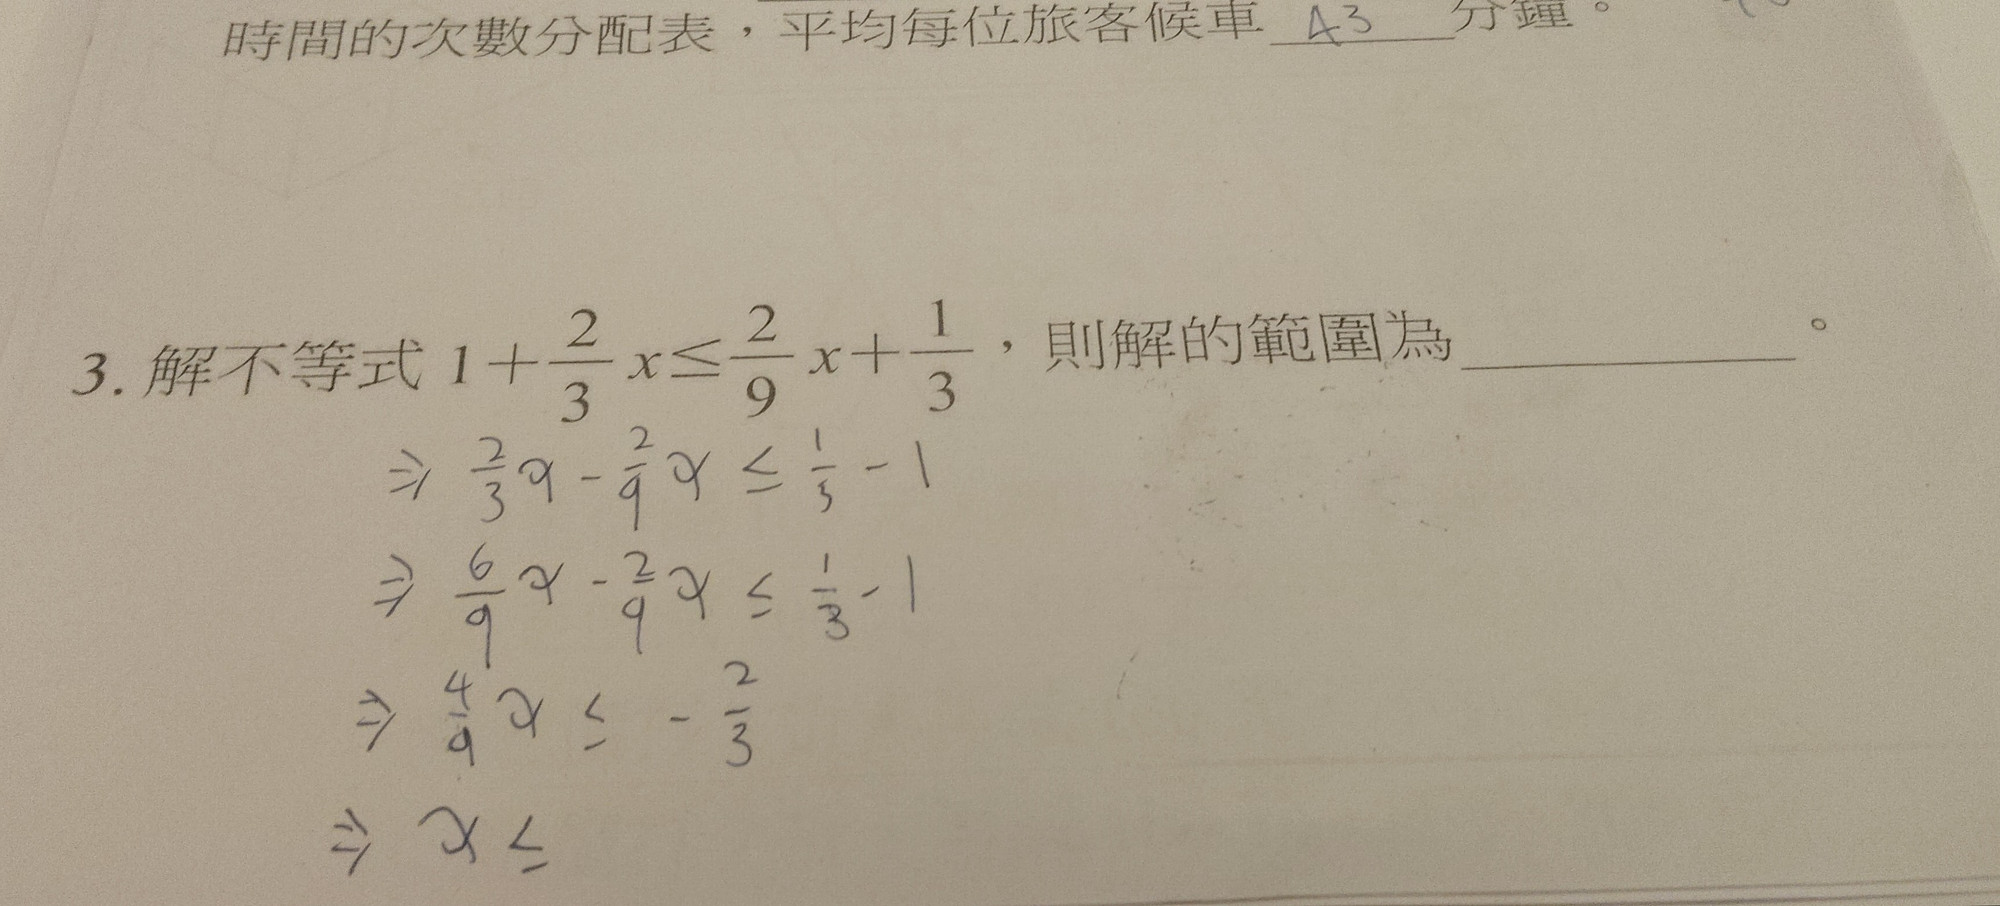 時間的次數分配表，平均每位旅客候車 43 分鐘。
3. 解不等式 1+2/3 x≤2/9 x+1/3，則解的範圍為________。
⇒ 2/3 x - 2/9 x ≤ 1/3 - 1
⇒ 6/9 x - 2/9 x ≤ 1/3 - 1
⇒ 4/9 x ≤ - 2/3
⇒ x ≤